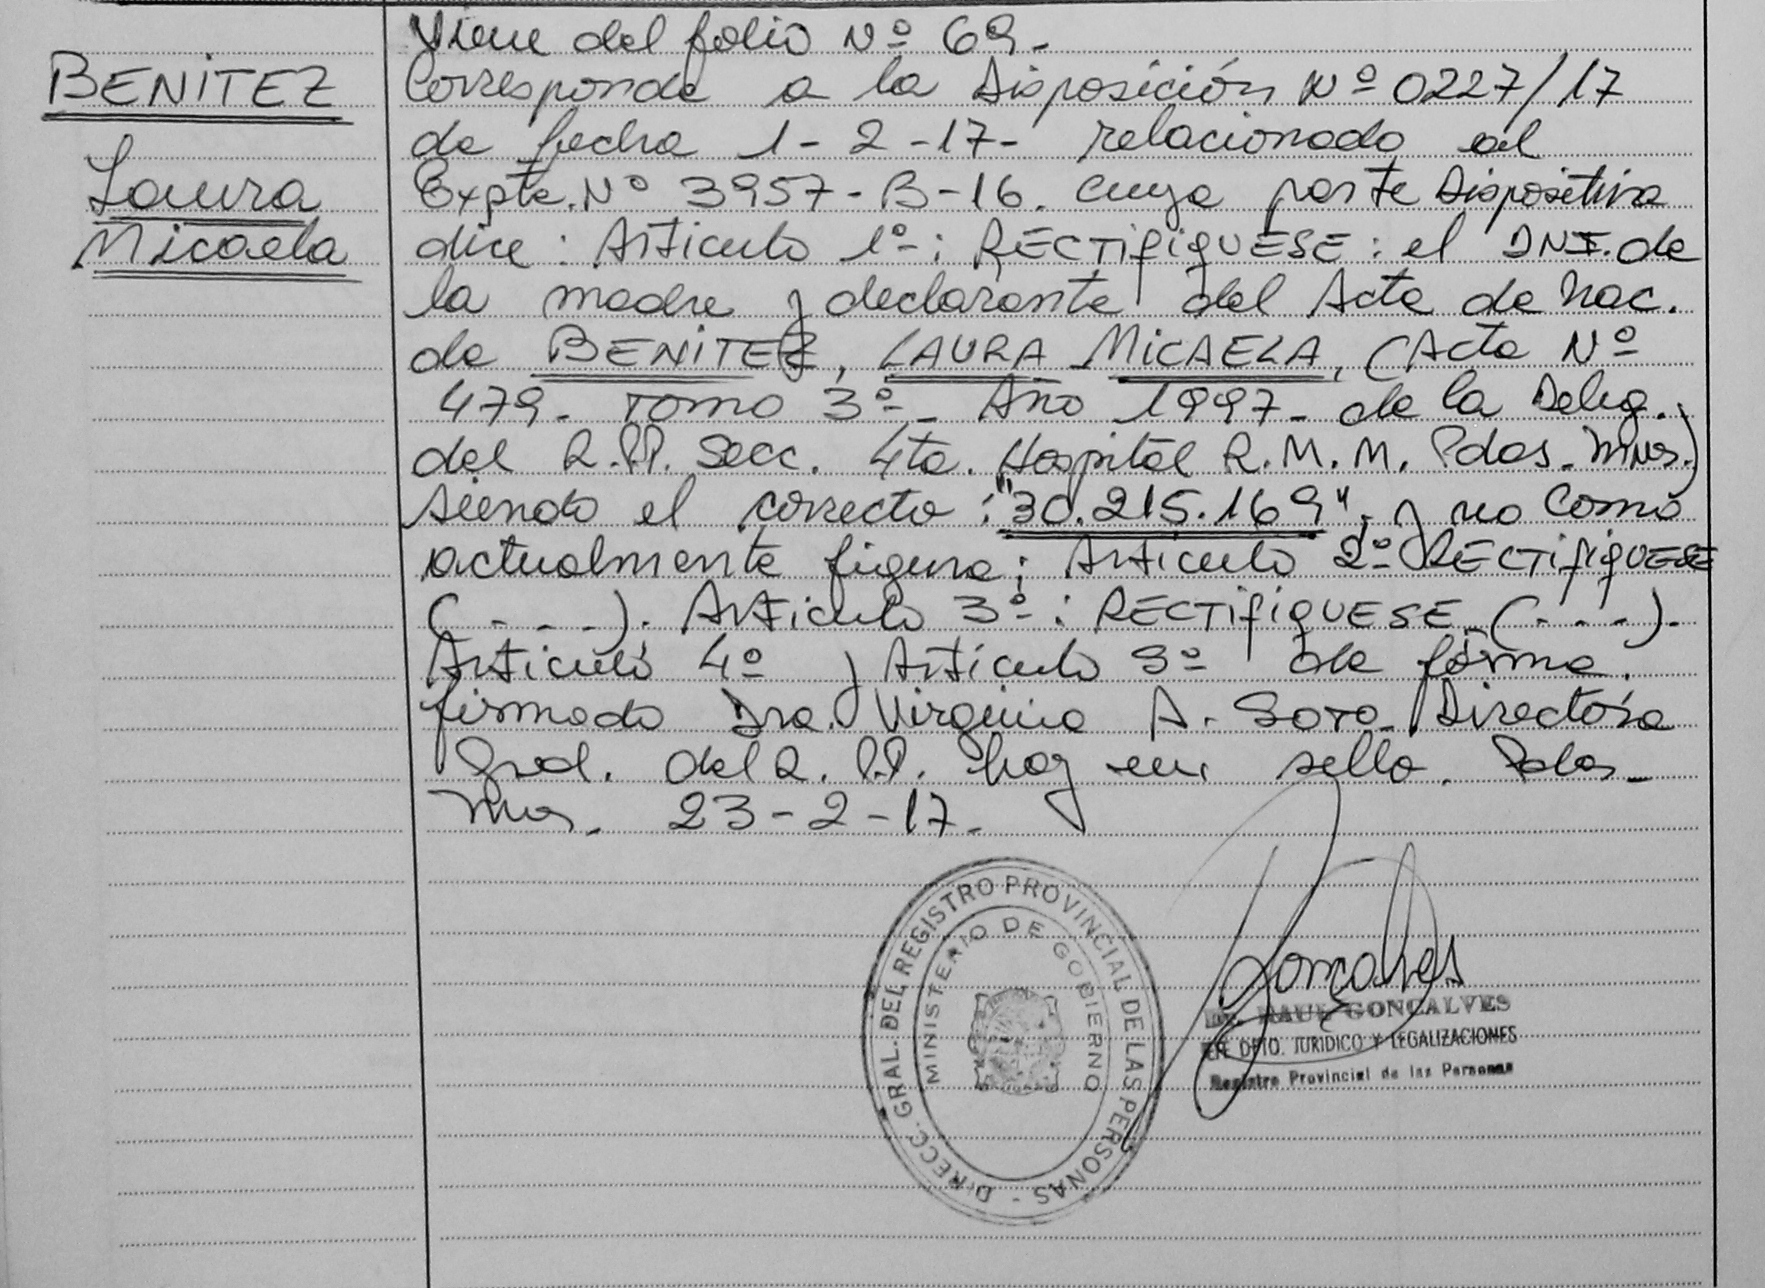 Viene del folio Nº 69.
BENITEZ
Laura
Micaela
Corresponde a la Disposición Nº 0227/17
de fecha 1-2-17- relacionado al
Expte. Nº 3957-B-16. cuya parte Dispositiva
dice: Artículo 1º: RECTIFIQUESE: el DNI. de
la madre y declarante del Acta de Nac.
de BENITEZ, LAURA MICAELA, (Acta Nº
479- Tomo 3º- Año 1997- de la Deleg.
del R.PP. Secc. 4ta. Hospital R.M.M. Pdas. Mnes.)
siendo el correcto: "30.215.169", y no como
actualmente figura; Artículo 2º RECTIFIQUESE
(- - -). Artículo 3º: RECTIFIQUESE (- - -).
Artículo 4º y Artículo 5º de forma.
firmado Dra. Virginia A. Soto. Directora
Gral. del R.PP. hay un sello. Pdas-
Mnes. 23-2-17.
DIRECC. GRAL. DEL REGISTRO PROVINCIAL DE LAS PERSONAS -
MINISTERIO DE GOBIERNO
Goncalves
Dr. RAUL GONCALVES
DPTO. JURIDICO Y LEGALIZACIONES
Registro Provincial de las Personas